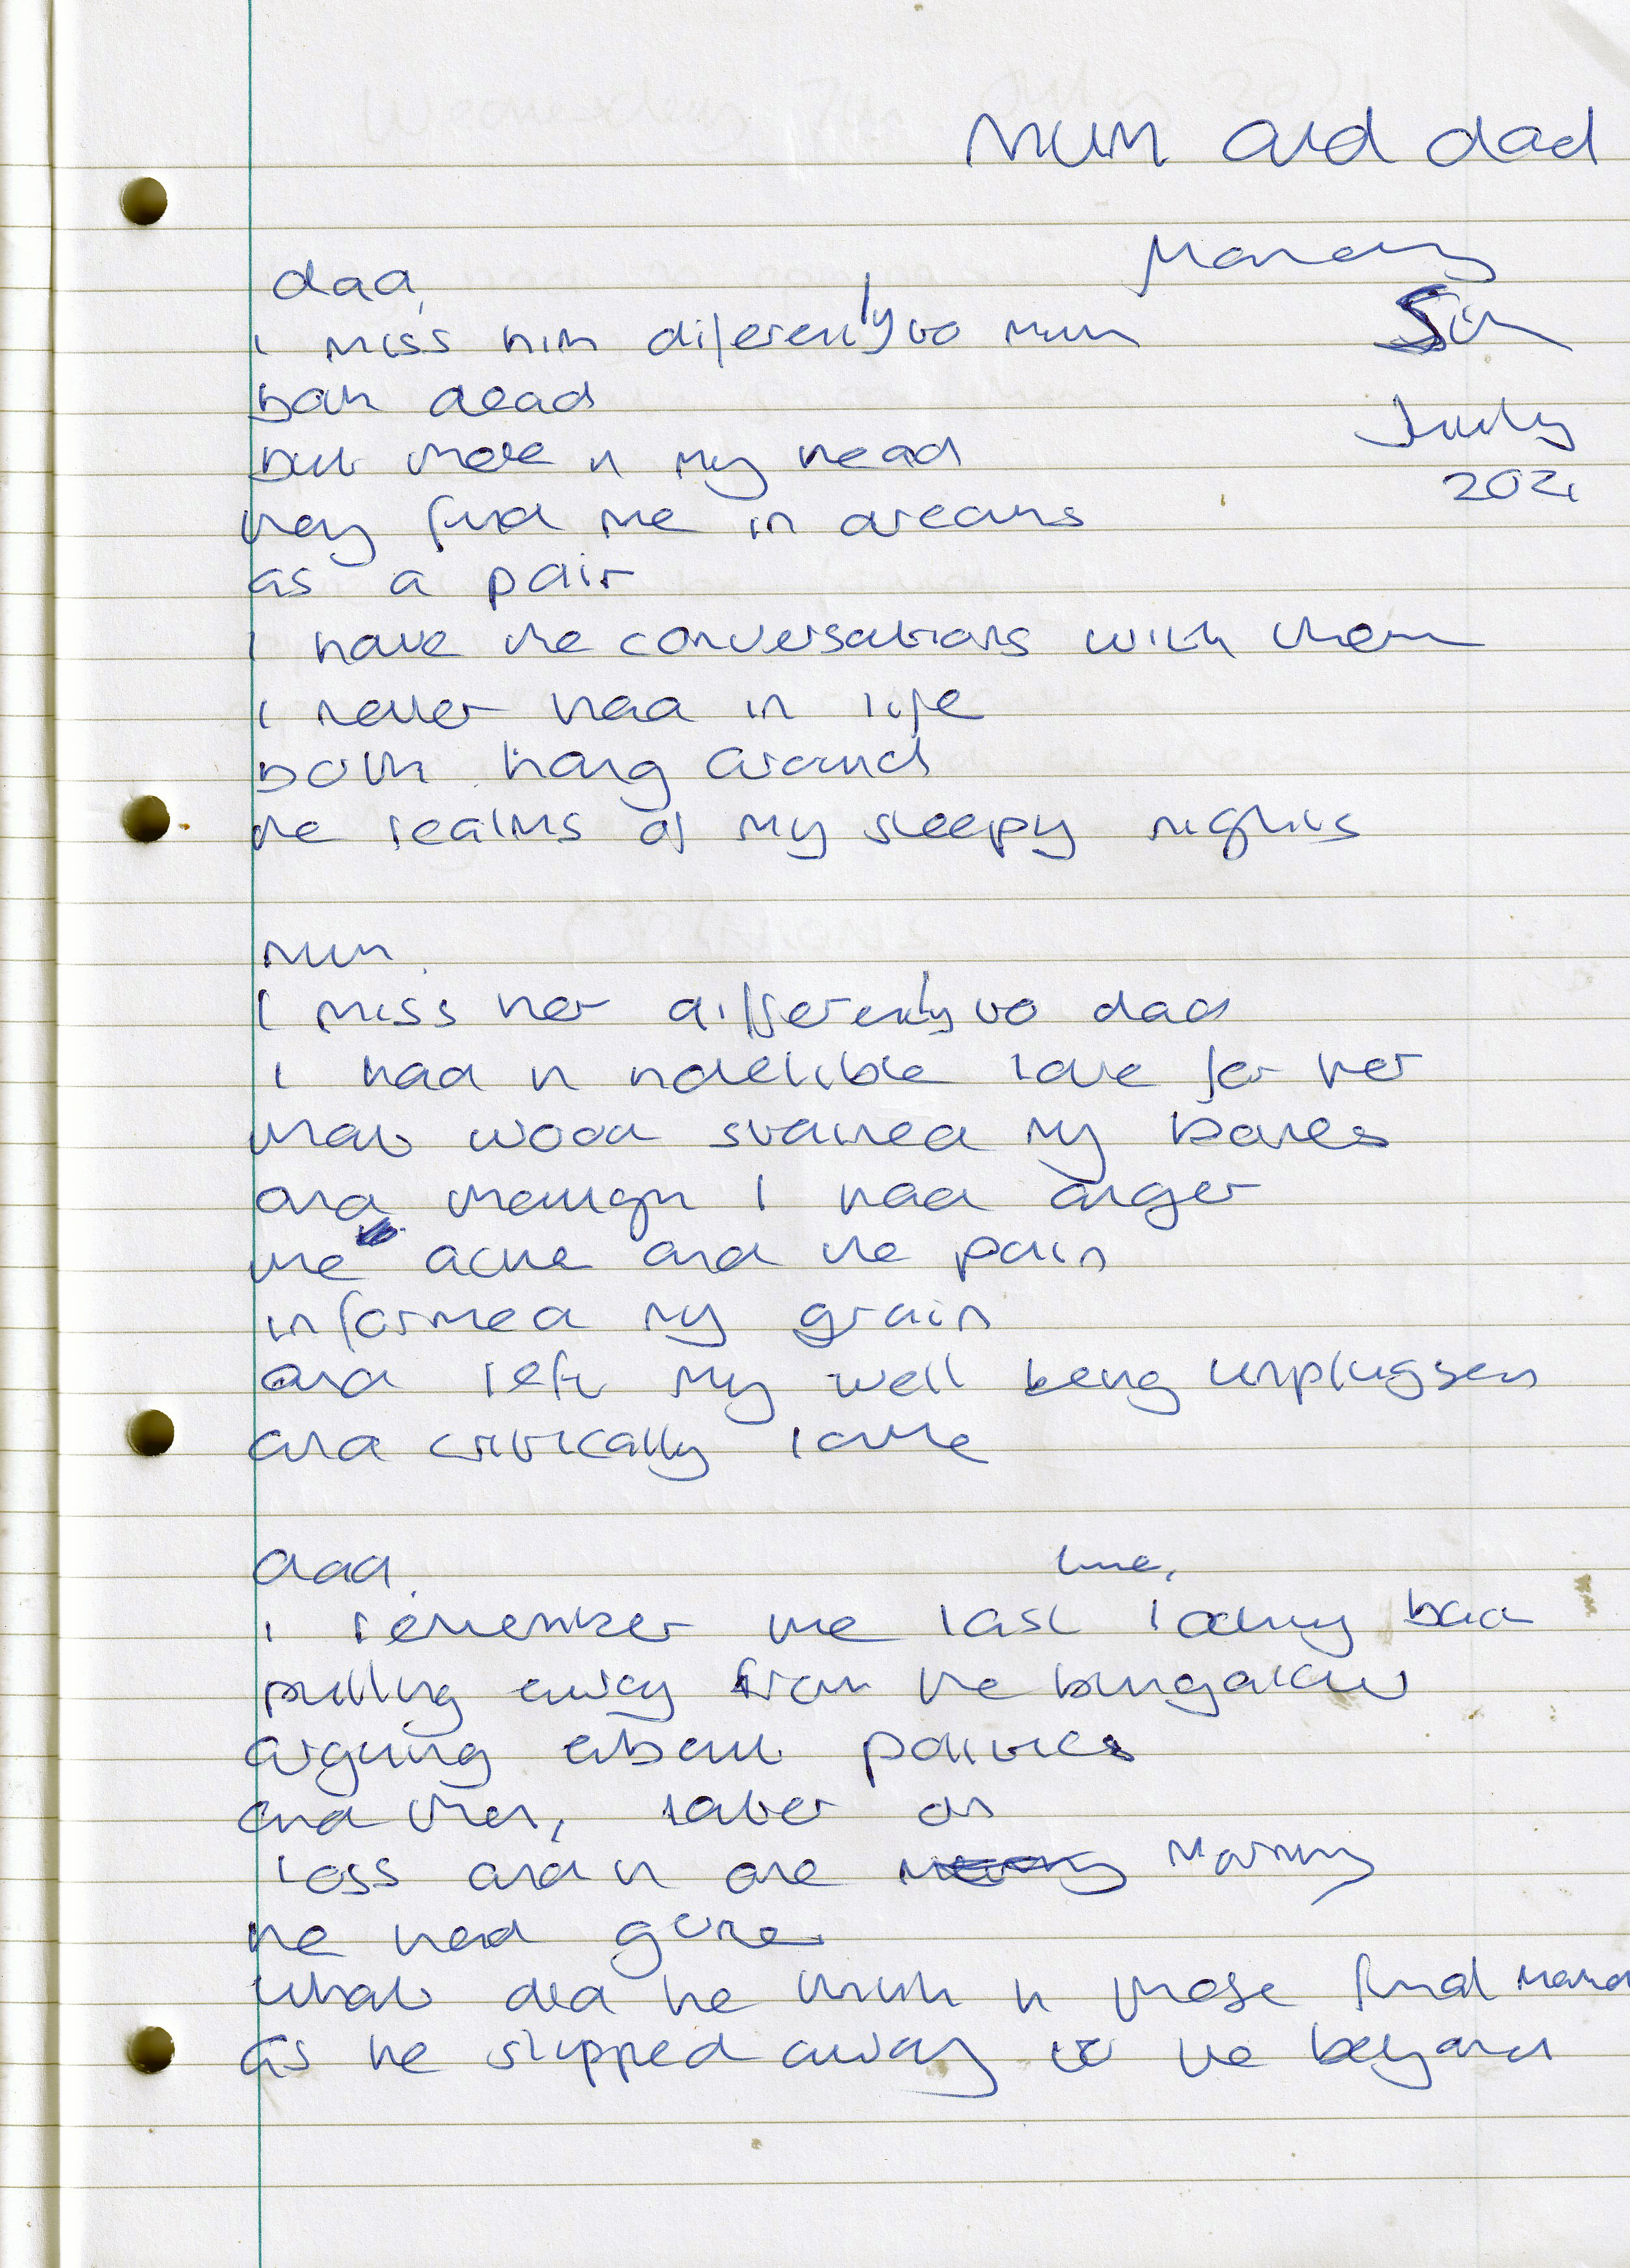 mum and dad
Monday
5th
July
2021
dad,
i miss him diferently to mum
both dead
but there in my head
they find me in dreams
as a pair
I have the conversations with them
i never had in life
both hang around
the realms of my sleepy nights
mum.
I miss her differently to dad
i had in indelible love for her
that wood stained my bones
and though I had anger
the ache and the pain
informed my grain
and left my well being unplugged
and critically lame
dad.
time,
i remember the last looking back
pulling away from the bungalow
arguing about politics
and then, later on
loss and in one morning
he had gone
what did he think in those final
as he slipped away to the beyond